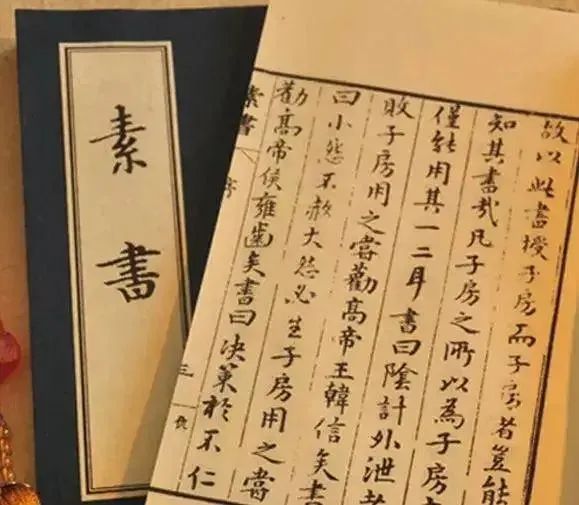 故以此書授子房而子房者豈能
知其書哉凡子房之所以為子房
僅能用其一二耳書曰陰計外泄
敗子房用之嘗勸高帝王韓信矣書
曰小怨不赦大怨必生子房用之嘗
勸高帝侯雍齒矣書曰決策於不仁
素書 序 三
素書